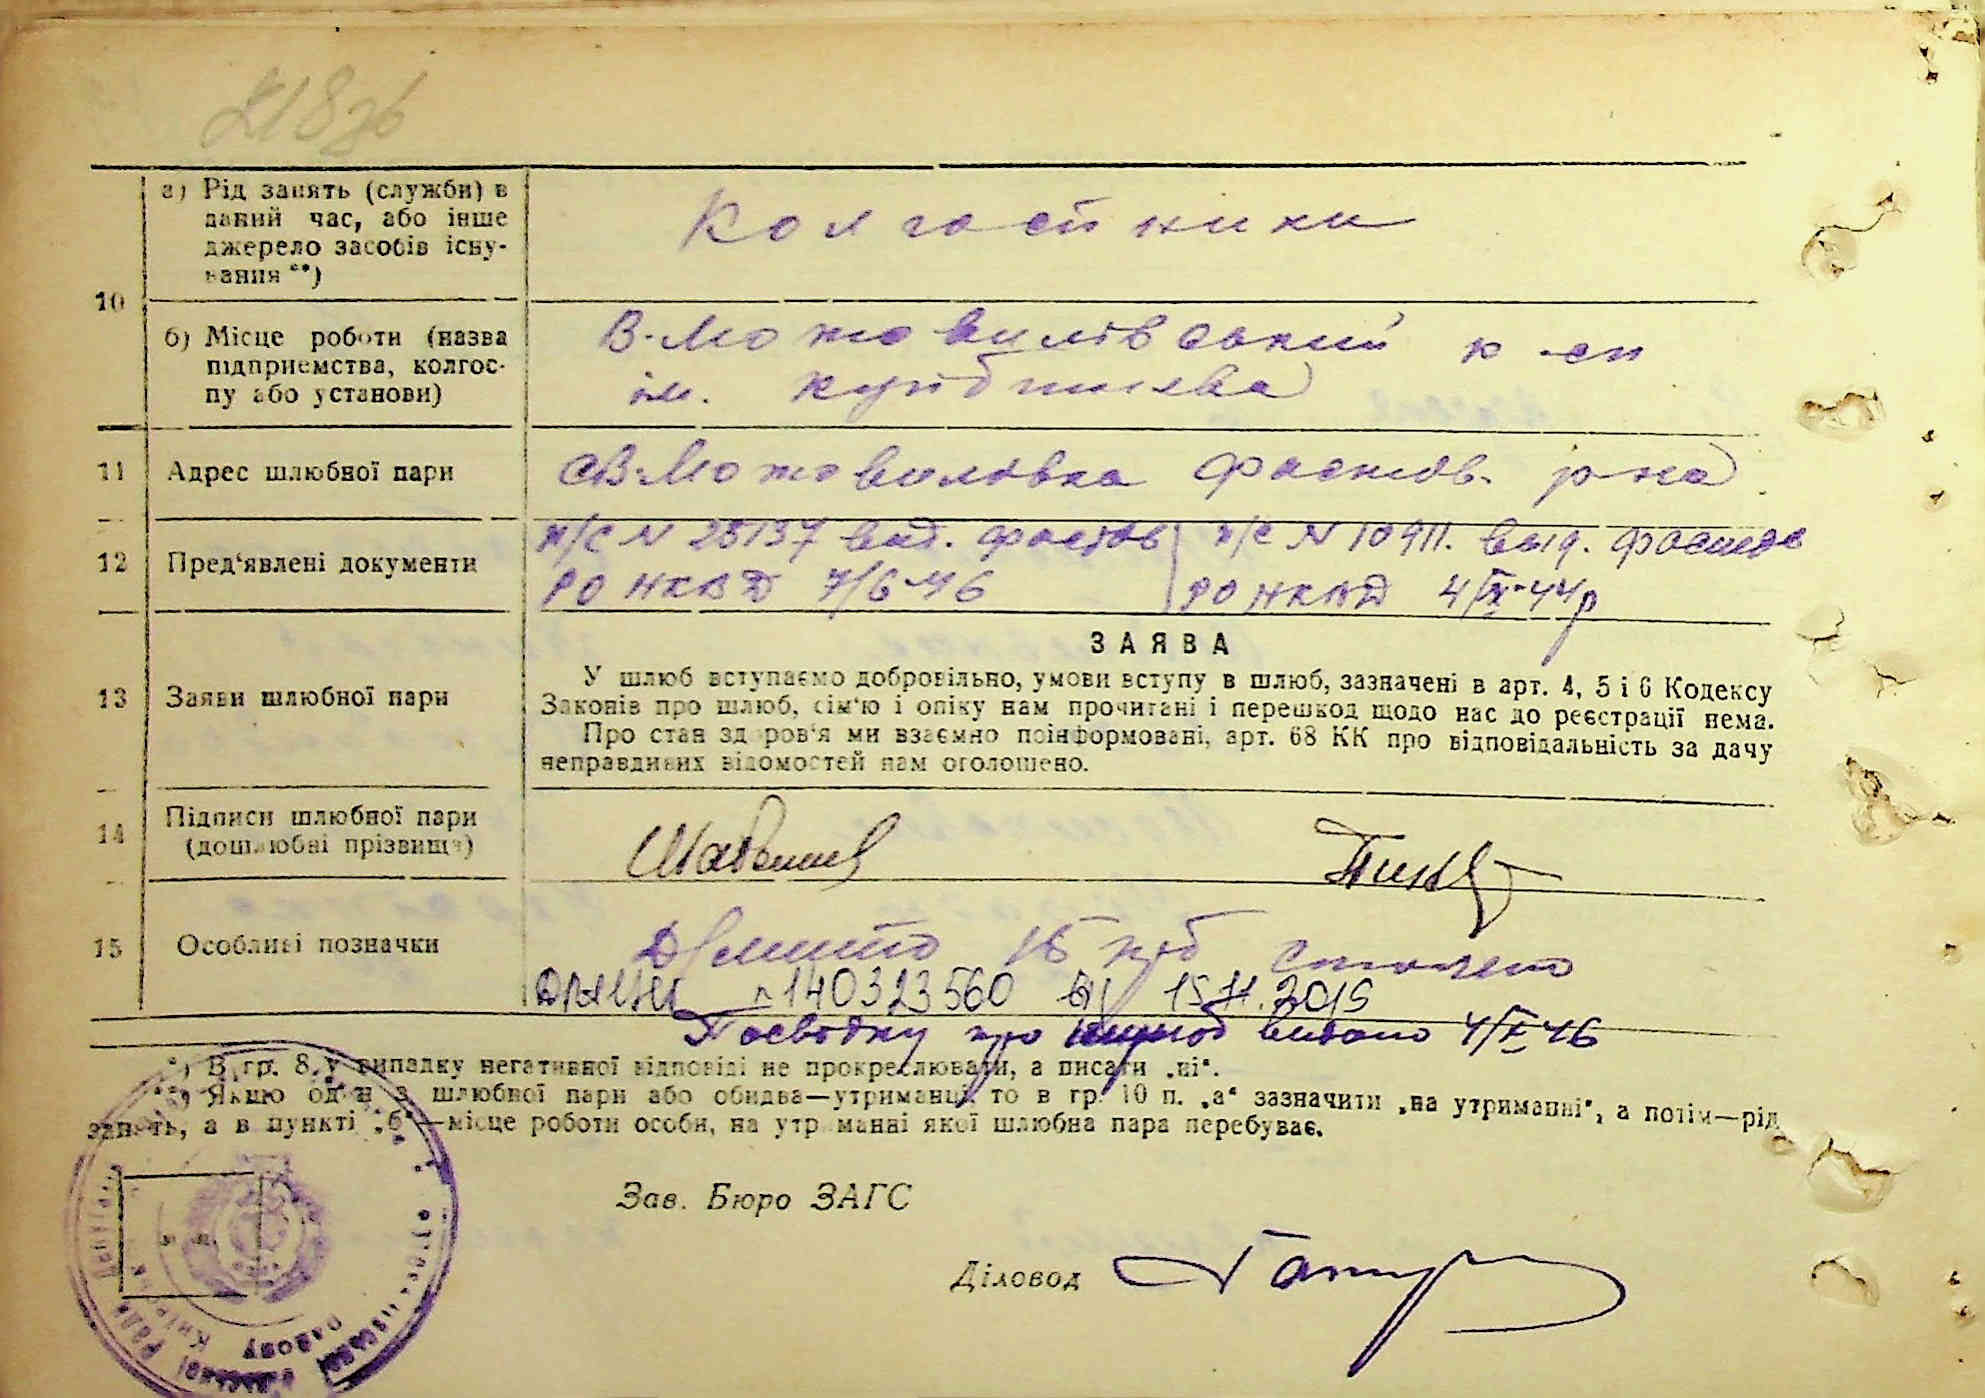 10
а) Рід занять (служби) в
даний час, або інше
джерело засобів існу-
вання **)
Колгосп ники
б) Місце роботи (назва
підприємства, колгос-
пу або установи)
В-Мотовилівський к-сп
ім. Куйбишева
11
Адрес шлюбної пари
с В-Мотовилівка Фастів. р-на
12
Пред'явлені документи
п/с N 25137 вид. Фастів
РО НКВД 7/6 46
п/с N 10911. выд. Фастов
РО НКВД 4/IX-44р
13
Заяви шлюбної пари
ЗАЯВА
У шлюб вступаємо добровільно, умови вступу в шлюб, зазначені в арт. 4, 5 і 6 Кодексу
Законів про шлюб, сім'ю і опіку нам прочитані і перешкод щодо нас до реєстрації нема.
Про стан здоров'я ми взаємно поінформовані, арт. 68 КК про відповідальність за дачу
неправдивих відомостей нам оголошено.
14
Підписи шлюбної пари
(дошлюбні прізвища)
15
Особливі позначки
Д/мито 15 крб сплачено
N 140323560 від 15.11.2015
Посвідку про шлюб видано
*) В гр. 8 у випадку негативної відповіді не прокреслювати, а писати „ні“.
**) Якщо один з шлюбної пари або обидва—утриманці, то в гр. 10 п. „а“ зазначити „на утриманні“, а потім—рід
занять, а в пункті „б“—місце роботи особи, на утриманні якої шлюбна пара перебуває.
Зав. Бюро ЗАГС
Діловод